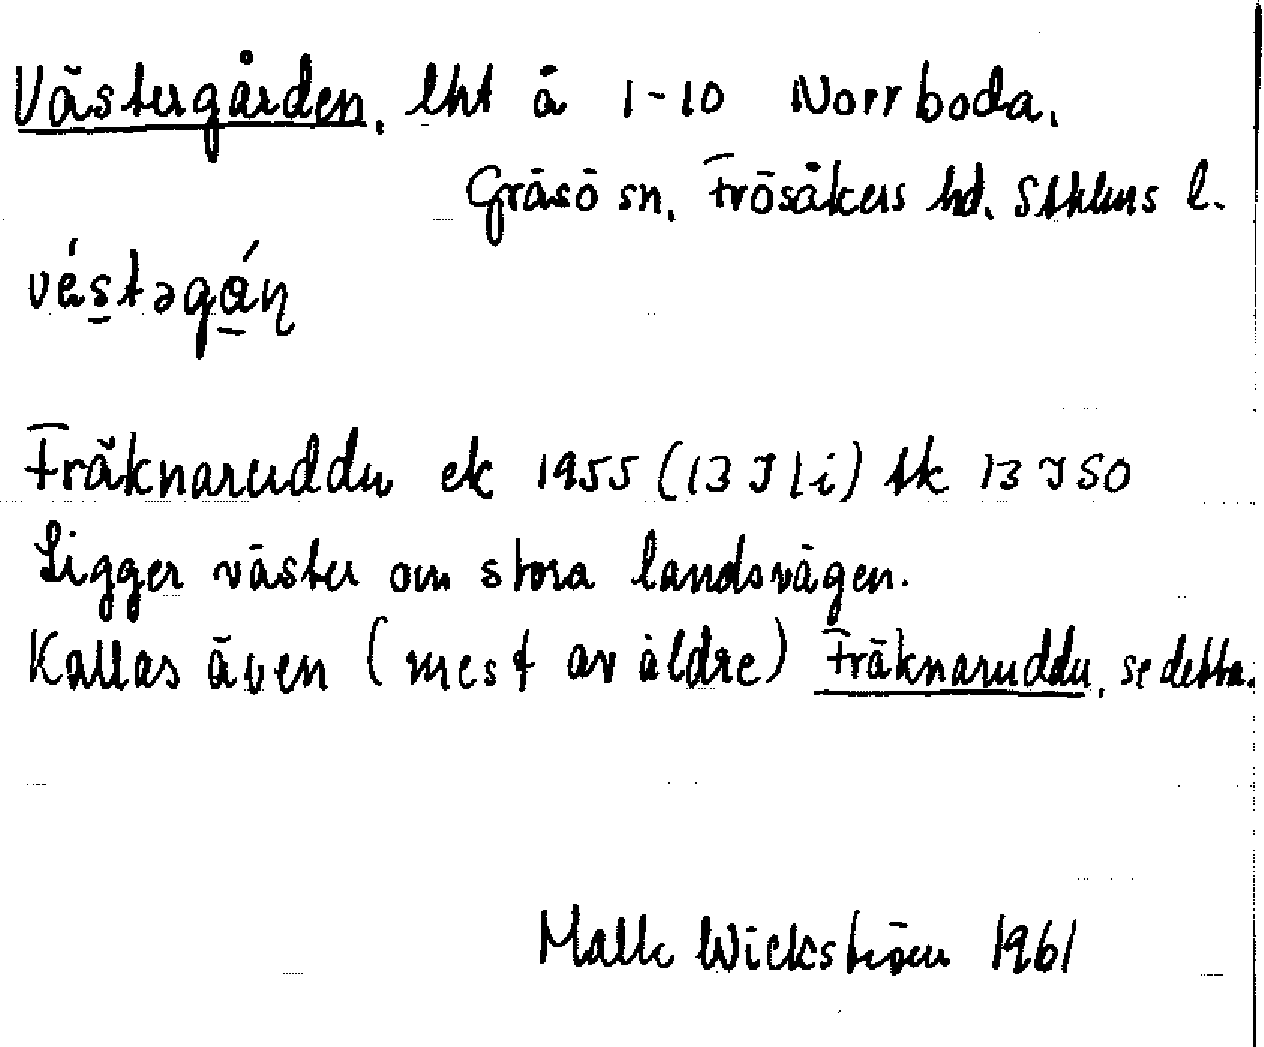 Västergården, lht å 1-10 Norrboda,
Gräsö sn, Frösåkers hd. Sthlms l.
vǽstəgán
Fräknaruddu ek 1955 (13 I 1 i) tk 13 I SO
Ligger väster om stora landsvägen.
Kallas även (mest av äldre) Fräknaruddu, se detta.
Malle Wickström 1961